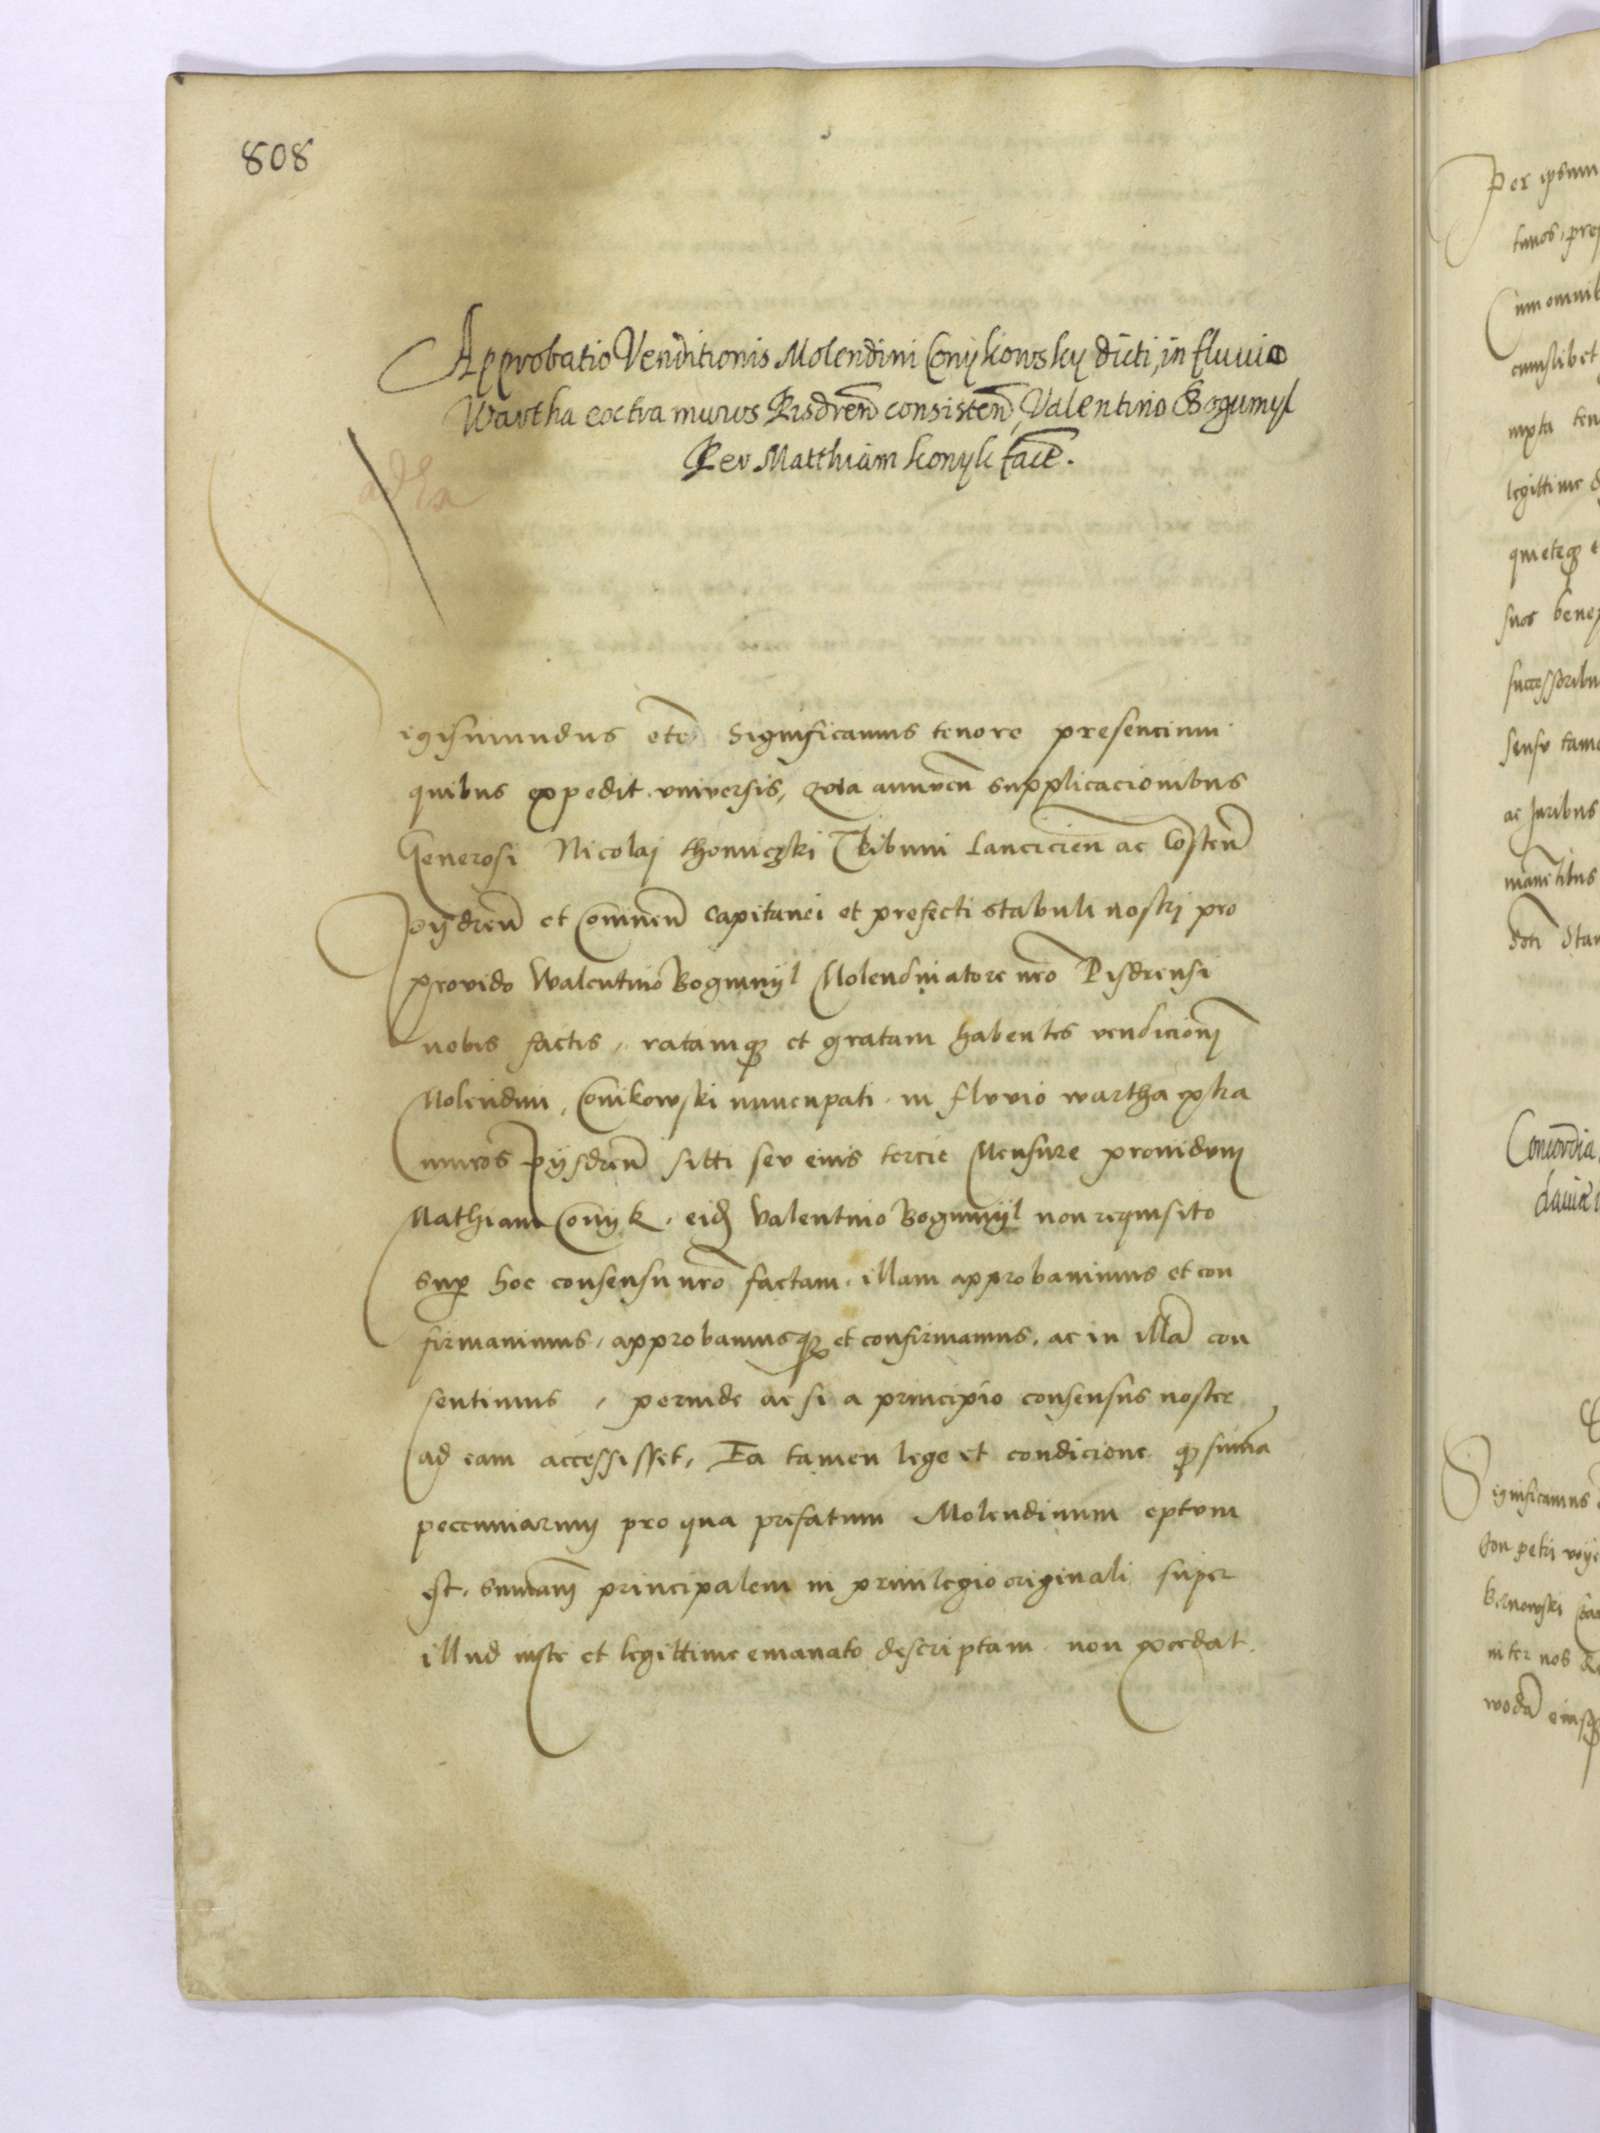 808
Approbatio Venditionis Molendini Conykowsky dicti, in fluvio
Wartha extra muros Pisdren̄ consisten̄, Valentino Bogumyl
Per Matthiam Konyk fact̄.
igismundus etc̄ Significamus tenore presencium
quibus expedit universis, Quia annuen̄ supplicacionibus
Generosi Nicolaj thomiczki Tribuni Lancicien̄ ac Costen̄
Pysdren̄ et Coninen̄ Capitanei et prefecti stabuli nostri pro
provido Walentino Bogumyl Molendinatore nr̄o Pisdrensi
nobis factis, ratamqꝫ et gratam habentes vendicionem
Molendini, Conikowski nuncupati in fluvio wartha extra
muros Pysdren̄ sitti seu eius tercie Mensure providum
Mathiam Conyk, eidem Valentino Bogumyl non requisito
suꝑ hoc consensu nr̄o factam, illam approbavimus et con
firmavimus, approbamusqꝫ et confirmamus, ac in illā con
sentimus, perinde ac si a principio consensus noster
ad eam accessisset, Ea tamen lege et condicione qꝫ sum̄a
pecuniarum pro qua prefatum Molendinum eptum
est, sum̄am principalem in privilegio originali super
illud iuste et legittime emanato descriptam non excedat.
Per ipsum
turos, prep
Cum omnib
cumslibet
mpta ten
legittime d
quieteqꝫ e
suos benep
successoribu
sensu tame
ac Juribus
manentibus
Concordia
Significamus
inter nos